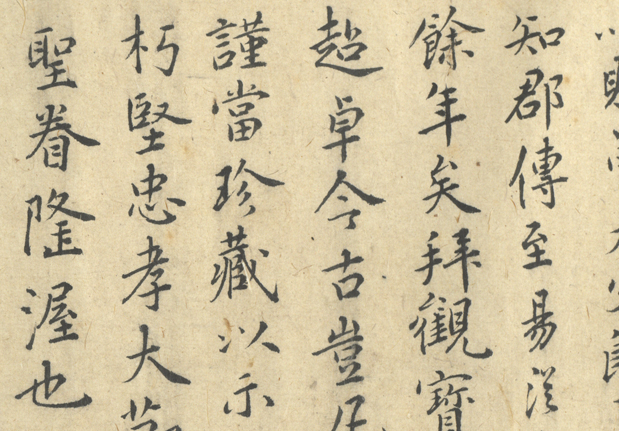 以
知郡傳至易從
餘年矣拜觀寶
超卓今古豈
謹當珍藏以示
朽堅忠孝大
聖眷隆渥也